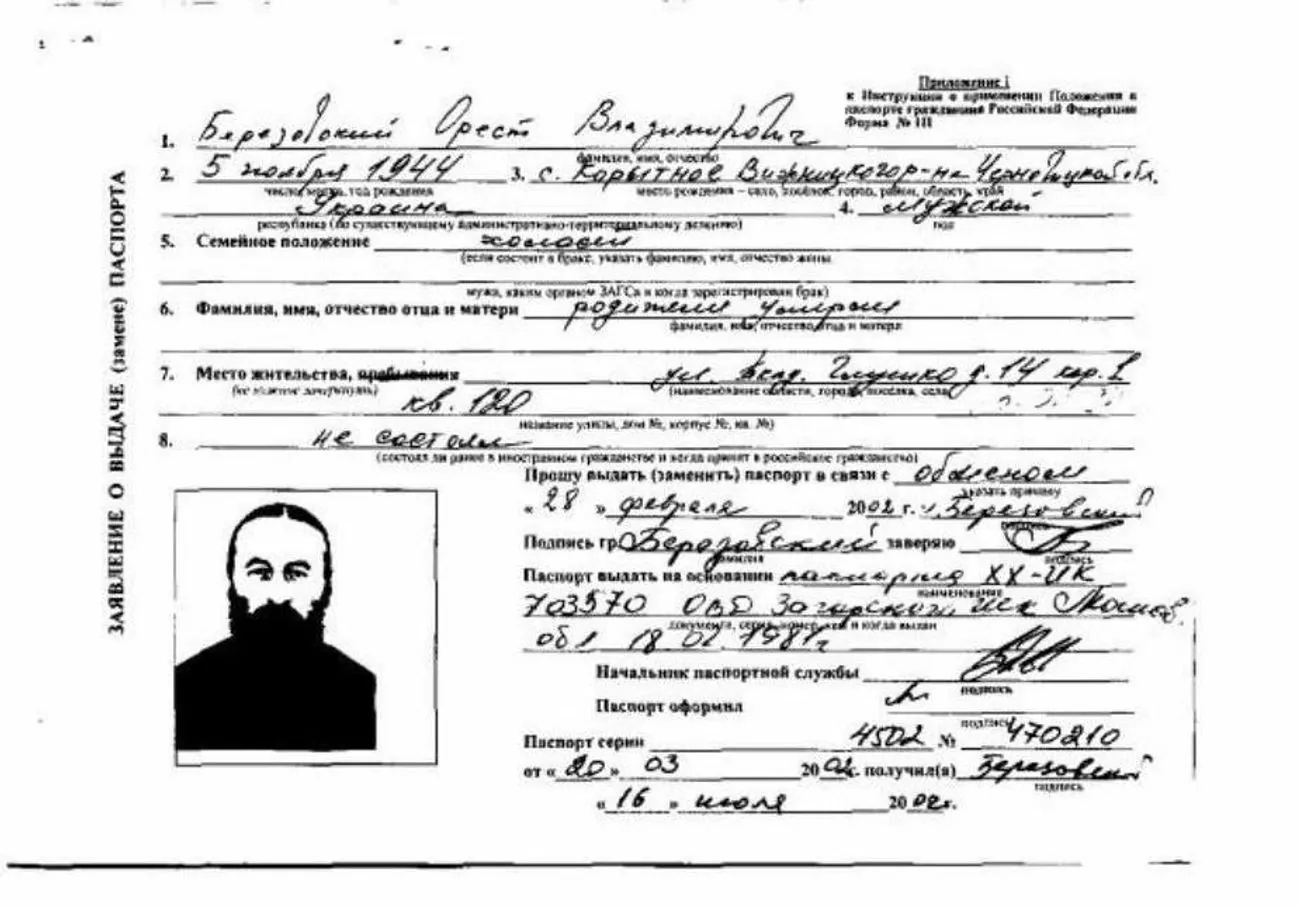 Приложение 1
к Инструкции о применении Положения о
паспорте гражданина Российской Федерации
Форма № 1П
ЗАЯВЛЕНИЕ О ВЫДАЧЕ (замене) ПАСПОРТА
1. Березовский Орест Владимирович
фамилия, имя, отчество
2. 5 ноября 1944 3. с. Корытное Вижницкого р-на Черновицкой обл.
число, месяц, год рождения место рождения – село, посёлок, город, район, область, край
Украина 4. мужской
республика (по существующему административно-территориальному делению) пол
5. Семейное положение холост
(если состоит в браке, указать фамилию, имя, отчество жены
мужа, каким органом ЗАГСа и когда зарегистрирован брак)
6. Фамилия, имя, отчество отца и матери родители умерли
фамилия, имя, отчество отца и матери
7. Место жительства, пребывания ул. Акад. Глушко д. 14 кор. 1
(не нужное зачеркнуть) (наименование области, города, посёлка, села
кв. 120
название улицы, дом №, корпус №, кв. №)
8. не состоял
(состоял ли ранее в иностранном гражданстве и когда принят в российское гражданство)
Прошу выдать (заменить) паспорт в связи с обменом
указать причину
« 28 » февраля 2002 г. Березовский
подпись
Подпись гр. Березовский заверяю
фамилия подпись
Паспорт выдать на основании паспорта XX-ИК
наименование
703570 ОВД Загорского Моск.
документа, серия, номер, кем и когда выдан
обл. 18.02.1981г
Начальник паспортной службы
подпись
Паспорт оформил
подпись
Паспорт серии 4502 № 470210
от « 20 » 03 2002г. получил(а) Березовский
подпись
« 16 » июля 2002г.